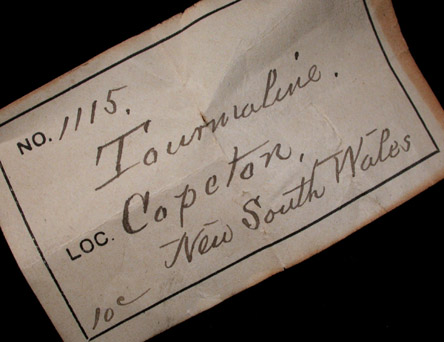 NO. 1115.
Tourmaline.
LOC. Copeton,
New South Wales
10c